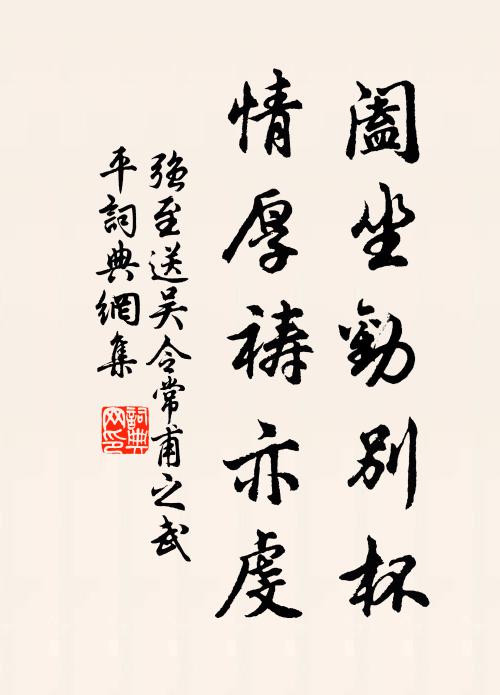 阖坐勸別杯
情厚祷亦虔
強至送吴令常甫之武
平詞典網集
詞典
网印